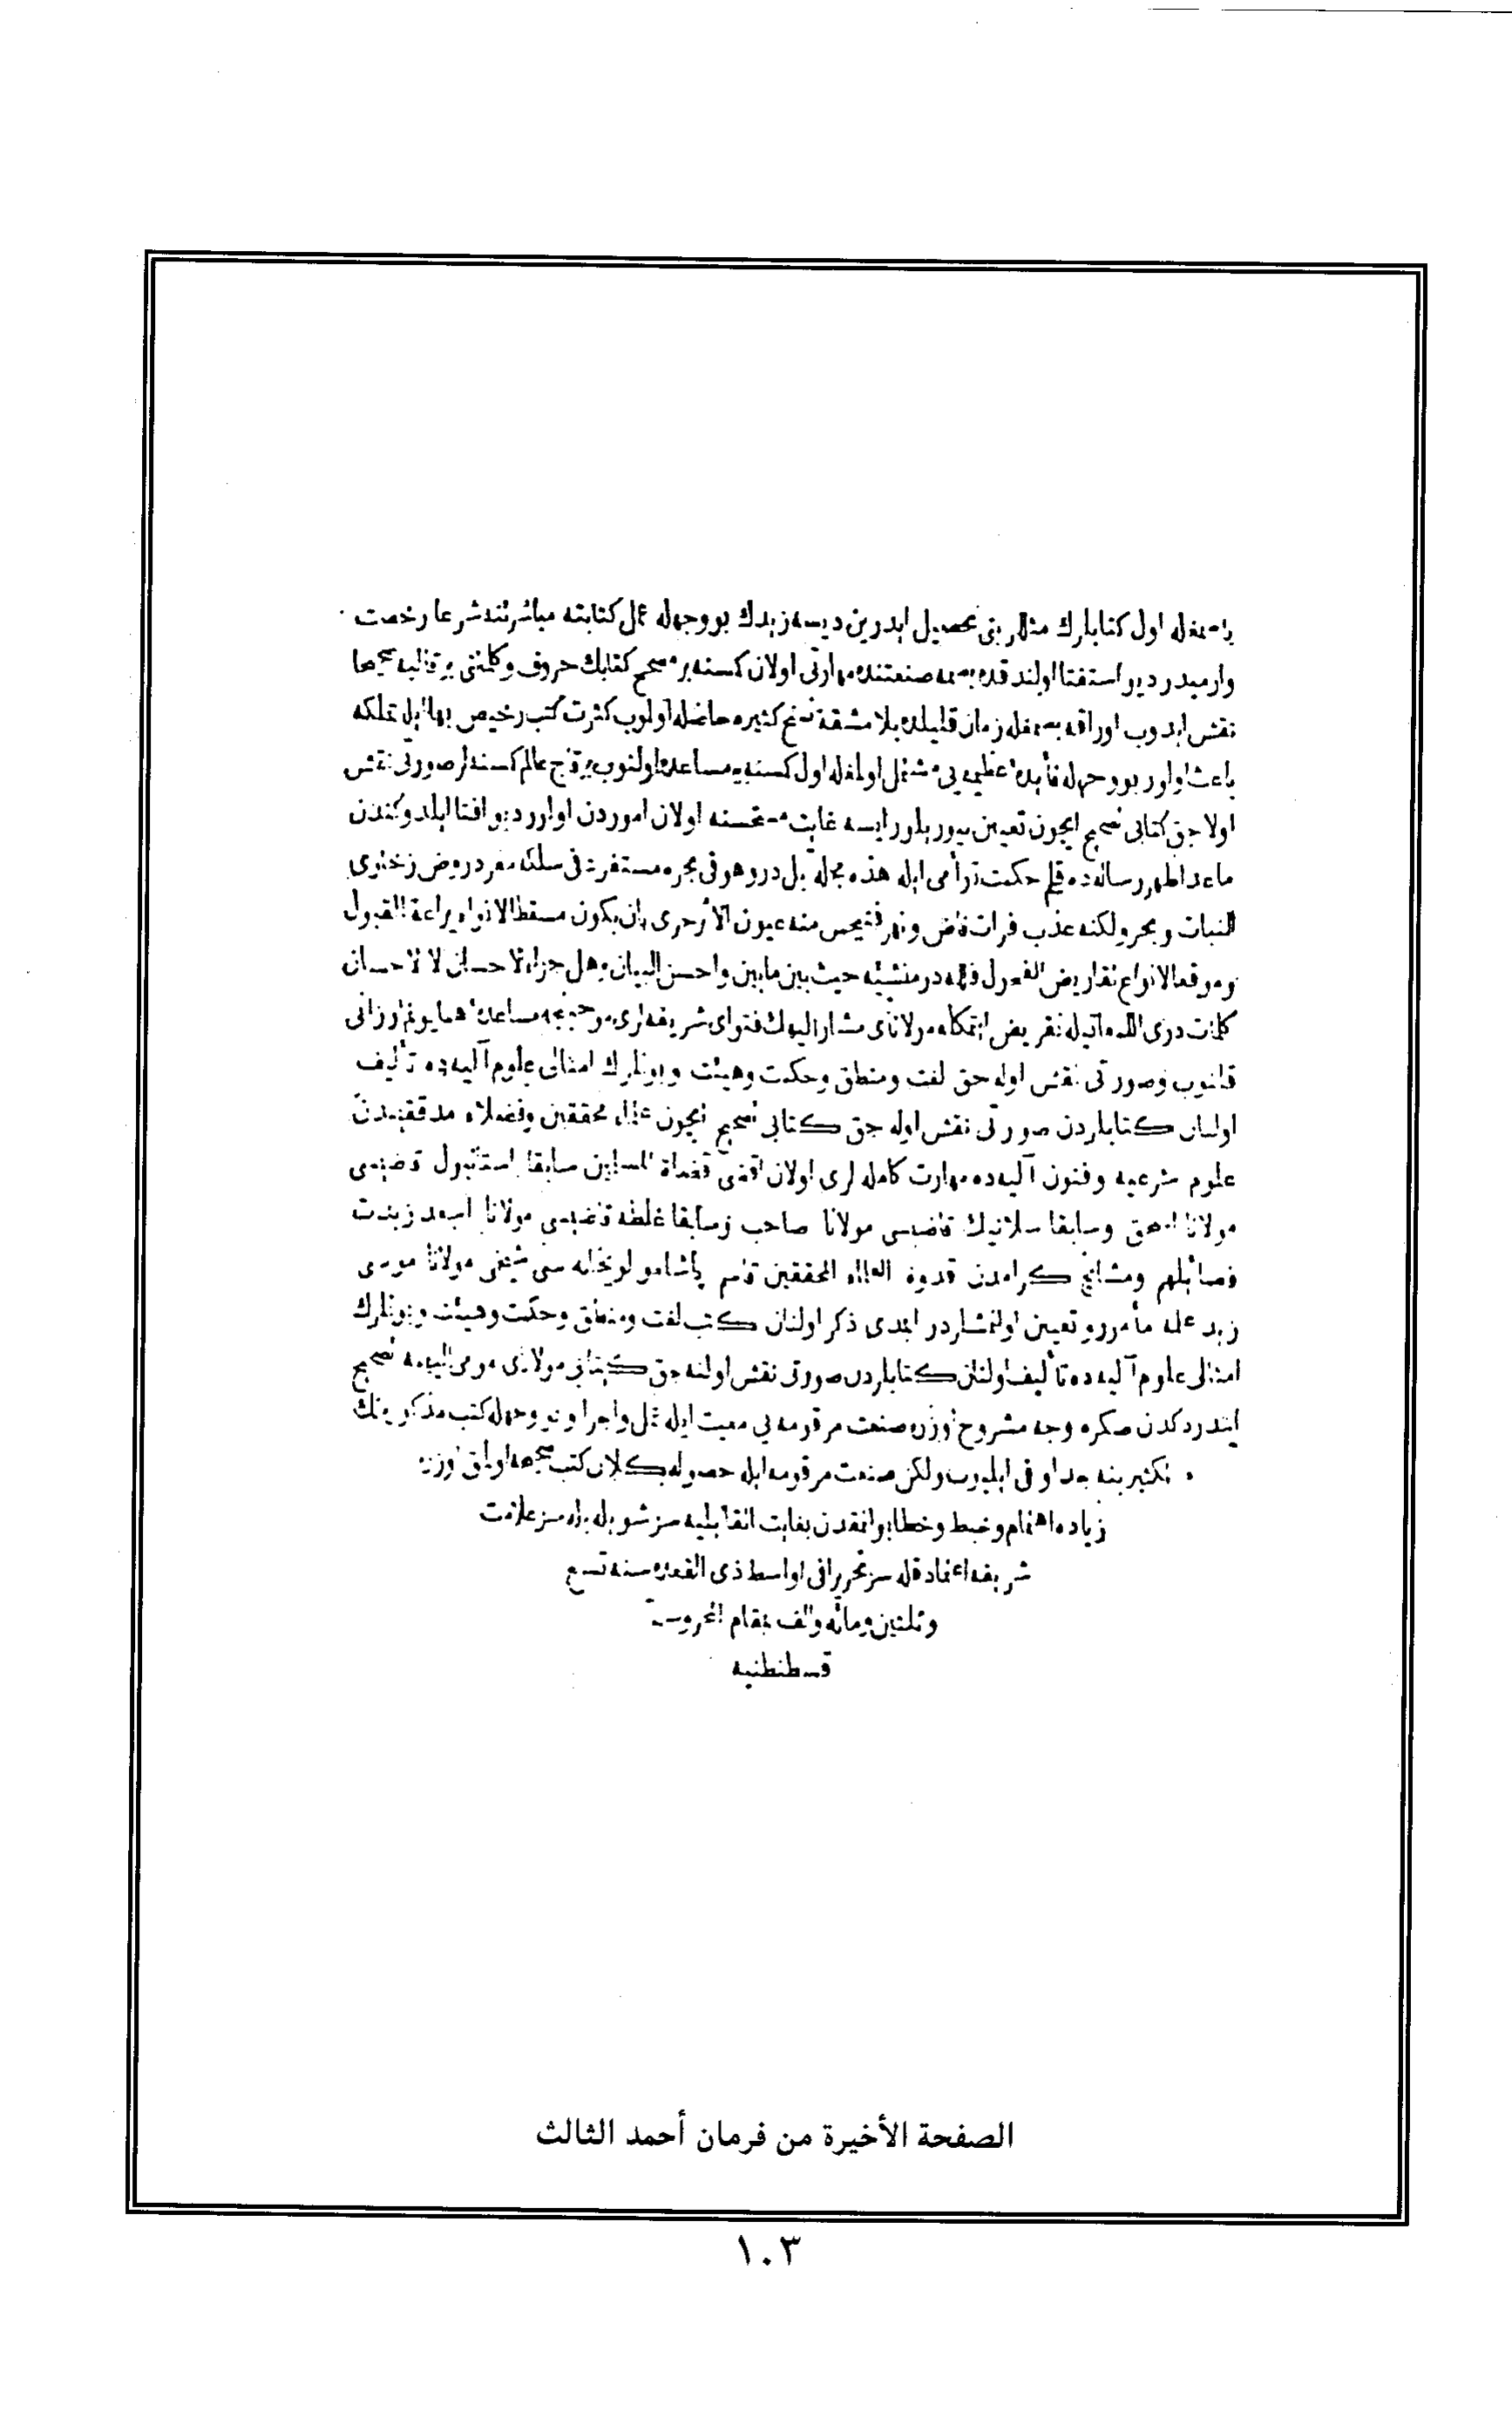 باصمغله اول كتابلرك مثللرینی تحصیل ایدرین دیسه زیدك بو وجهله عمل كتابته مباشرتنه شرعا رخصت
وارمیدر دیو استفتا اولندقده بصمه صنعتنده مهارتی اولان كسنه بر مصحح كتابك حروف وكلمتنی بر قالبه صحیحا
نقش ایدوب اوراقه بصمغله زمان قلیلده بلا مشقة نسخ كثیره حاصله اولوب كثرت كتب رخیص بها ایله تملكه
باعث اولور بو وجهله فائدهٔ عظیمه یی مشتمل اولمغله اول كسنه یه مساعده اولنوب بر قاچ عالم كسنه لر صورتی نقش
اولاجق كتابی تصحیح ایچون تعیین بیوریلور ایسه غایت مستحسنه اولان اموردن اولور دیو افتا ایلدوكندن
ماعدا لمهر رساله ده قلم حكمت توأمی ایله هذه مجلة بل در وهو فی بحره مستغرق فی سلكه مفرد روض زخاری
النبات وبحر ولكنه عذب فرات فاض ونهر فتیجس منه عیون الا ترحری بان یكون مسقط الانواء براعة القبول
وموقعا لانواع تقاریض الفحول فلله در منشئه حیث بین مابین واحسن البیان وهل جزاء الاحسان الا الاحسان
كلمات دری اللمعاتیله تقریض ایتمكله مولانای مشار الیهك فتوای شریفه لری موجبنجه مساعدهٔ همایونم ارزانی
قلنوب وصورتی نقش اوله جق لغت ومنطق وحكمت وهیئت وبونلرك امثالی علوم آلیه ده تألیف
اولنان كتابلردن صورتی نقش اوله جق كتابی تصحیح ایچون علماء محققین وفضلاء مدققیندن
علوم شرعیه وفنون آلیه ده مهارت كامله لری اولان اقضی قضاة المسلمین سابقا استانبول قاضیسی
مولانا اسحق وسابقا سلانیك قاضیسی مولانا صاحب وسابقا غلطه قاضیسی مولانا اسعد زیدت
فضائلهم ومشایخ كرامدن قدوة العلماء المحققین قاسم پاشا مولویخانه سی شیخی مولانا موسی
زید علمه مأمور وتعیین اولنمشلردر ایمدی ذكر اولنان كتب لغت ومنطق وحكمت وهیئت وبونلرك
امثالی علوم آلیه ده تألیف اولنان كتابلردن صورتی نقش اولنه جق كتابی مولانای مومی الیهمه تصحیح
ایتدردكدن صكره وجه مشروح اوزره صنعت مرقومه یی معیت ایله عمل واجرا وبو وجهله كتب مذكوره نك
تكثیرینه جد اوفی ایلیوب ولكن صنعت مرقومه ایله حصوله كلان كتب صحیحه اولمق اوزره
زیاده اهتمام وخبط وخطا بولنمقدن بغایت اتقا ایلیه سز شویله بیله سز علامت
شریفه اعتماد قله سز تحریرا فی اواسط ذی القعده سنه تسع
وثلثین ومائه والف بمقام المحروسة
قسطنطنیه
الصفحة الأخيرة من فرمان أحمد الثالث
١٠٣